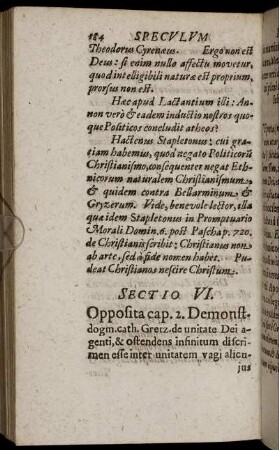 184 SPECULVM
Theodorus Cyrenæus. Ergo non est
Deus: si enim nullo affectu movetur,
quod intelligibili naturæ est proprium,
prorsus non est.
Hæc apud Lactantium illi: An-
non verò & eadem inductio nostros quo-
que Politicos concludit atheos?
Hactenus Stapletonus: cui gra-
tiam habemus, quod negato Politicorũ
Christianismo, consequenter negat Eth-
nicorum naturalem Christianismum,
& quidem contra Bellarminum &
Gryzerum. Vide, benevole lector, illa
quæ idem Stapletonus in Promptuario
Morali Domin. 6. post Pascha p. 720.
de Christianis scribit: Christianus non
ab arte, sed à fide nomen habet. Pu-
deat Christianos nescire Christum.
SECTIO VI.
Opposita cap. 2. Demonst.
dogm. cath. Gretz. de unitate Dei a-
genti, & ostendens infinitum discri-
men esse inter unitatem vagi alicu-
jus